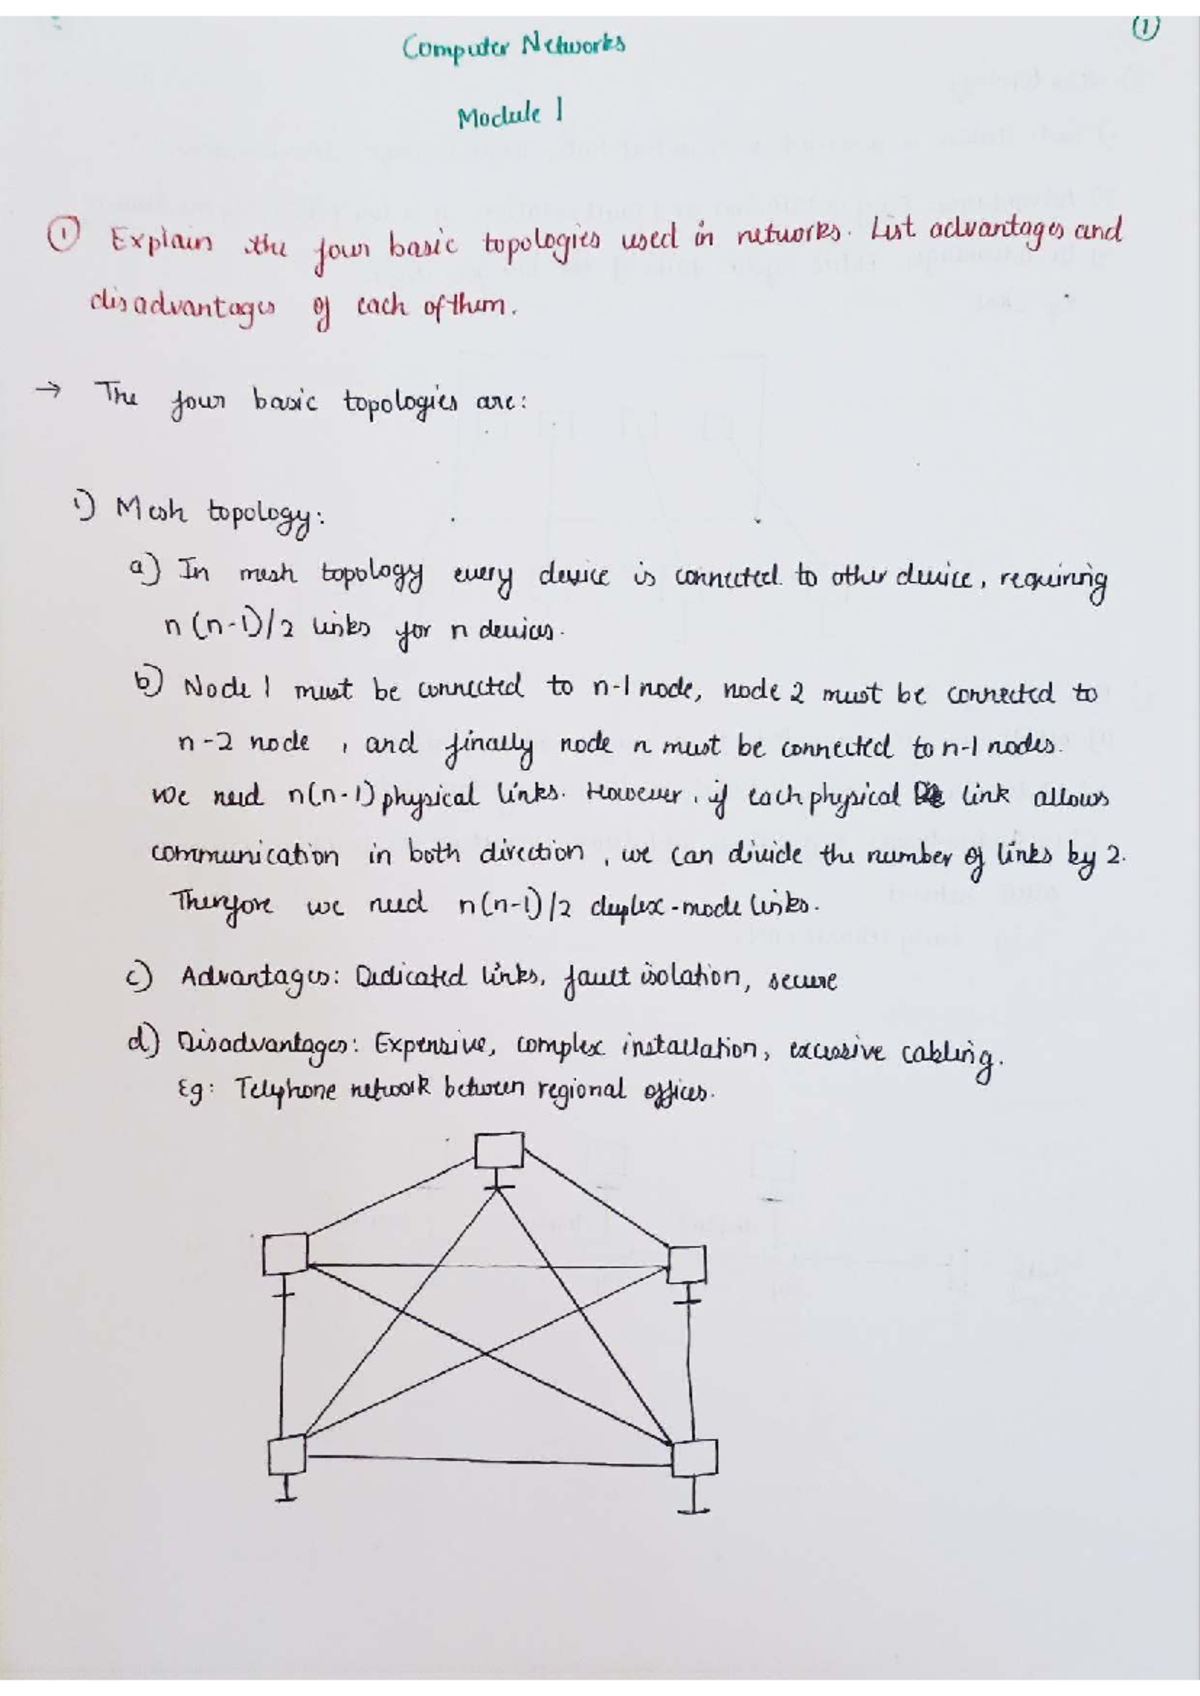 (1)
Computer Networks
Module 1
(1) Explain the four basic topologies used in networks. List advantages and
disadvantages of each of them.
→ The four basic topologies are:
i) Mesh topology:
a) In mesh topology every device is connected to other device, requiring
n(n-1)/2 links for n devices.
b) Node 1 must be connected to n-1 node, node 2 must be connected to
n-2 node, and finally node n must be connected to n-1 nodes.
we need n(n-1) physical links. However, if each physical link allows
communication in both direction, we can divide the number of links by 2.
Therefore we need n(n-1)/2 duplex-mode links.
c) Advantages: Dedicated links, fault isolation, secure
d) Disadvantages: Expensive, complex installation, excessive cabling.
Eg: Telephone network between regional offices.